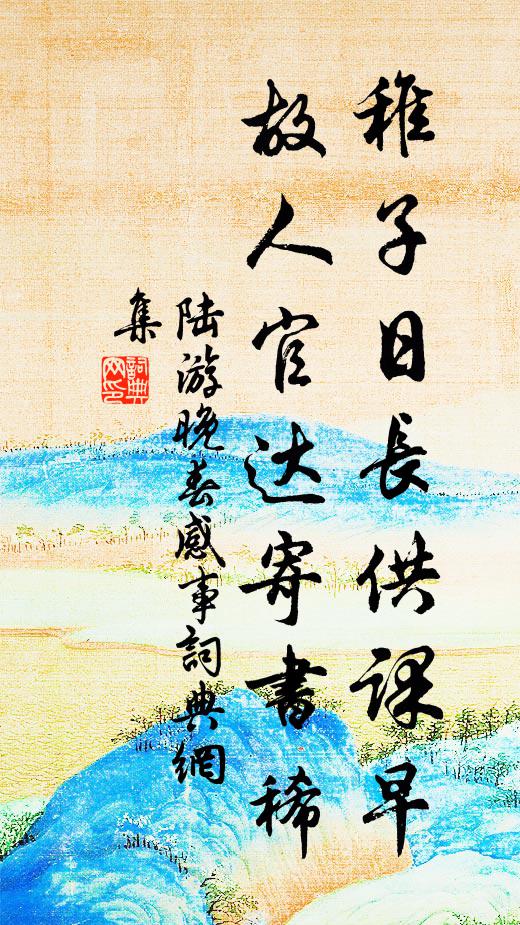 稚子日長供課早
故人官达寄書稀
陆游晚春感事詞典網
集
詞典
网印